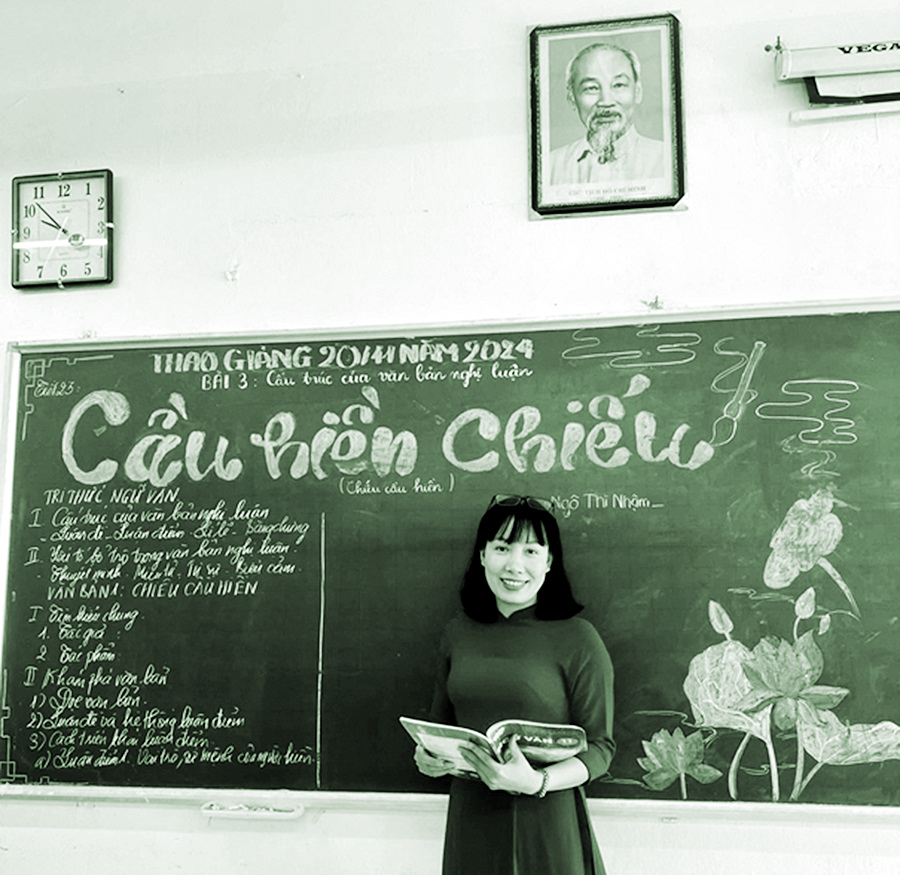 VEGA
CHỦ TỊCH HỒ CHÍ MINH
11 12 1
10 2
9 3
8
7 6 5
THAO GIẢNG 20/11 NĂM 2024
BÀI 3: Cấu trúc của văn bản nghị luận
Tiết 23:
Cầu hiền chiếu
(Chiếu cầu hiền)
Ngô Thì Nhậm
TRI THỨC NGỮ VĂN
I. Cấu trúc của văn bản nghị luận
- Luận đề - Luận điểm - Lí lẽ - Bằng chứng
II. Yếu tố bổ trợ trong văn bản nghị luận.
- Thuyết minh - Miêu tả - Tự sự - Biểu cảm.
VĂN BẢN 1: CHIẾU CẦU HIỀN
I Tìm hiểu chung.
1. Tác giả :
2. Tác phẩm
II Khám phá văn bản
1) Đọc văn bản.
2) Luận đề và hệ thống luận điểm
3) Cách triển khai luận điểm
a) Luận điểm 1. Vai trò, sứ mệnh của người hiền.
VĂN 11